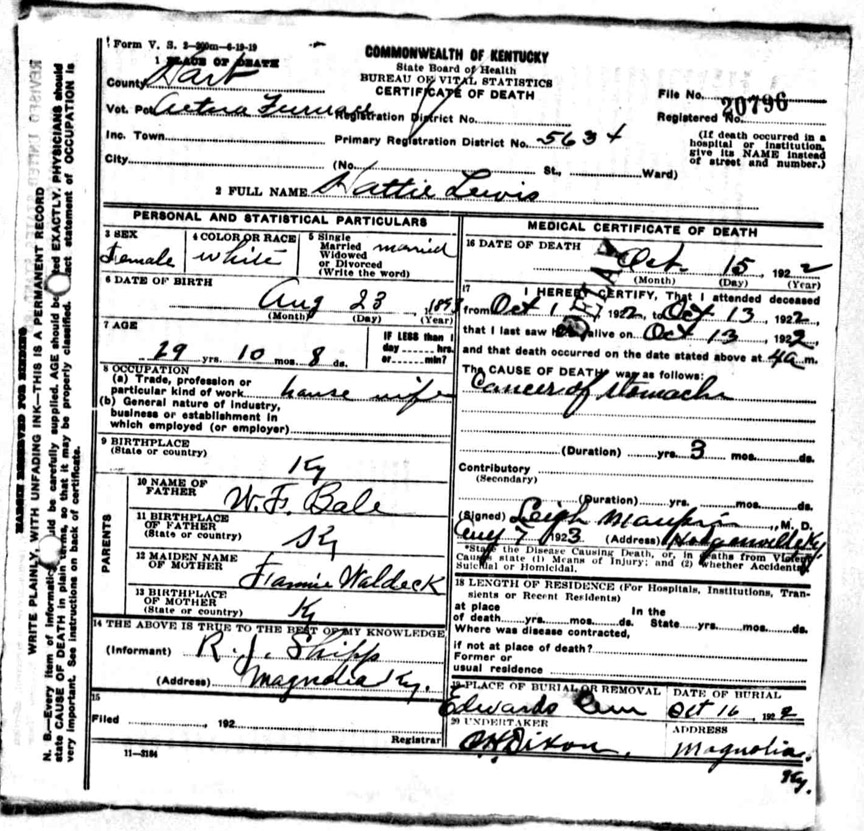 Form V. S. 2-200m-6-19-19
COMMONWEALTH OF KENTUCKY
State Board of Health
BUREAU OF VITAL STATISTICS
CERTIFICATE OF DEATH
1 PLACE OF DEATH
County Hart
Vot. Pct Aetna Furnace Registration District No.
Inc. Town Primary Registration District No. 5634
City (No. St., Ward)
File No. 20796
Registered No.
(If death occurred in a
hospital or institution,
give its NAME instead
of street and number.)
2 FULL NAME Hattie Lewis
PERSONAL AND STATISTICAL PARTICULARS
3 SEX
Female
4 COLOR OR RACE
white
5 Single
Married
Widowed
or Divorced
(Write the word)
married
6 DATE OF BIRTH
Aug 23
(Month) (Day) (Year)
7 AGE
29 yrs. 10 mos. 8 ds.
IF LESS than 1
day hrs.
or min?
8 OCCUPATION
(a) Trade, profession or
particular kind of work house wife
(b) General nature of industry,
business or establishment in
which employed (or employer)
9 BIRTHPLACE
(State or country)
Ky
PARENTS
10 NAME OF
FATHER
W. F. Bale
11 BIRTHPLACE
OF FATHER
(State or country)
Ky
12 MAIDEN NAME
OF MOTHER
Fannie Waldeck
13 BIRTHPLACE
OF MOTHER
(State or country)
Ky
14 THE ABOVE IS TRUE TO THE BEST OF MY KNOWLEDGE
(Informant) R. J. Shipp
(Address) Magnolia Ky.
15
Filed , 192
Registrar
11-3184
MEDICAL CERTIFICATE OF DEATH
16 DATE OF DEATH
Oct. 15, 1922
(Month) (Day) (Year)
DELAY
17 I HEREBY CERTIFY, That I attended deceased
from Oct 1 1922, to Oct 13, 1922,
that I last saw alive on Oct 13, 1922,
and that death occurred on the date stated above at 4a m.
The CAUSE OF DEATH was as follows:
Cancer of stomach
(Duration) yrs. 3 mos. ds.
Contributory
(Secondary)
(Duration) yrs. mos. ds.
(Signed) Leigh Maupin, M. D.
Aug 7 1923 (Address) Hodgenville Ky.
*State the Disease Causing Death, or, in deaths from Violent
Causes state (1) Means of Injury; and (2) whether Accidental,
Suicidal or Homicidal.
18 LENGTH OF RESIDENCE (For Hospitals, Institutions, Tran-
sients or Recent Residents)
at place In the
of death yrs. mos. ds. State yrs. mos. ds.
Where was disease contracted,
if not at place of death?
Former or
usual residence
19 PLACE OF BURIAL OR REMOVAL
Edwards Cem
DATE OF BURIAL
Oct 16, 1922
20 UNDERTAKER
Dixon
ADDRESS
Magnolia
Ky.
MARGIN RESERVED FOR BINDING
WRITE PLAINLY, WITH UNFADING INK—THIS IS A PERMANENT RECORD
N. B.—Every item of information should be carefully supplied. AGE should be stated EXACTLY. PHYSICIANS should
state CAUSE OF DEATH in plain terms, so that it may be properly classified. Exact statement of OCCUPATION is
very important. See instructions on back of certificate.